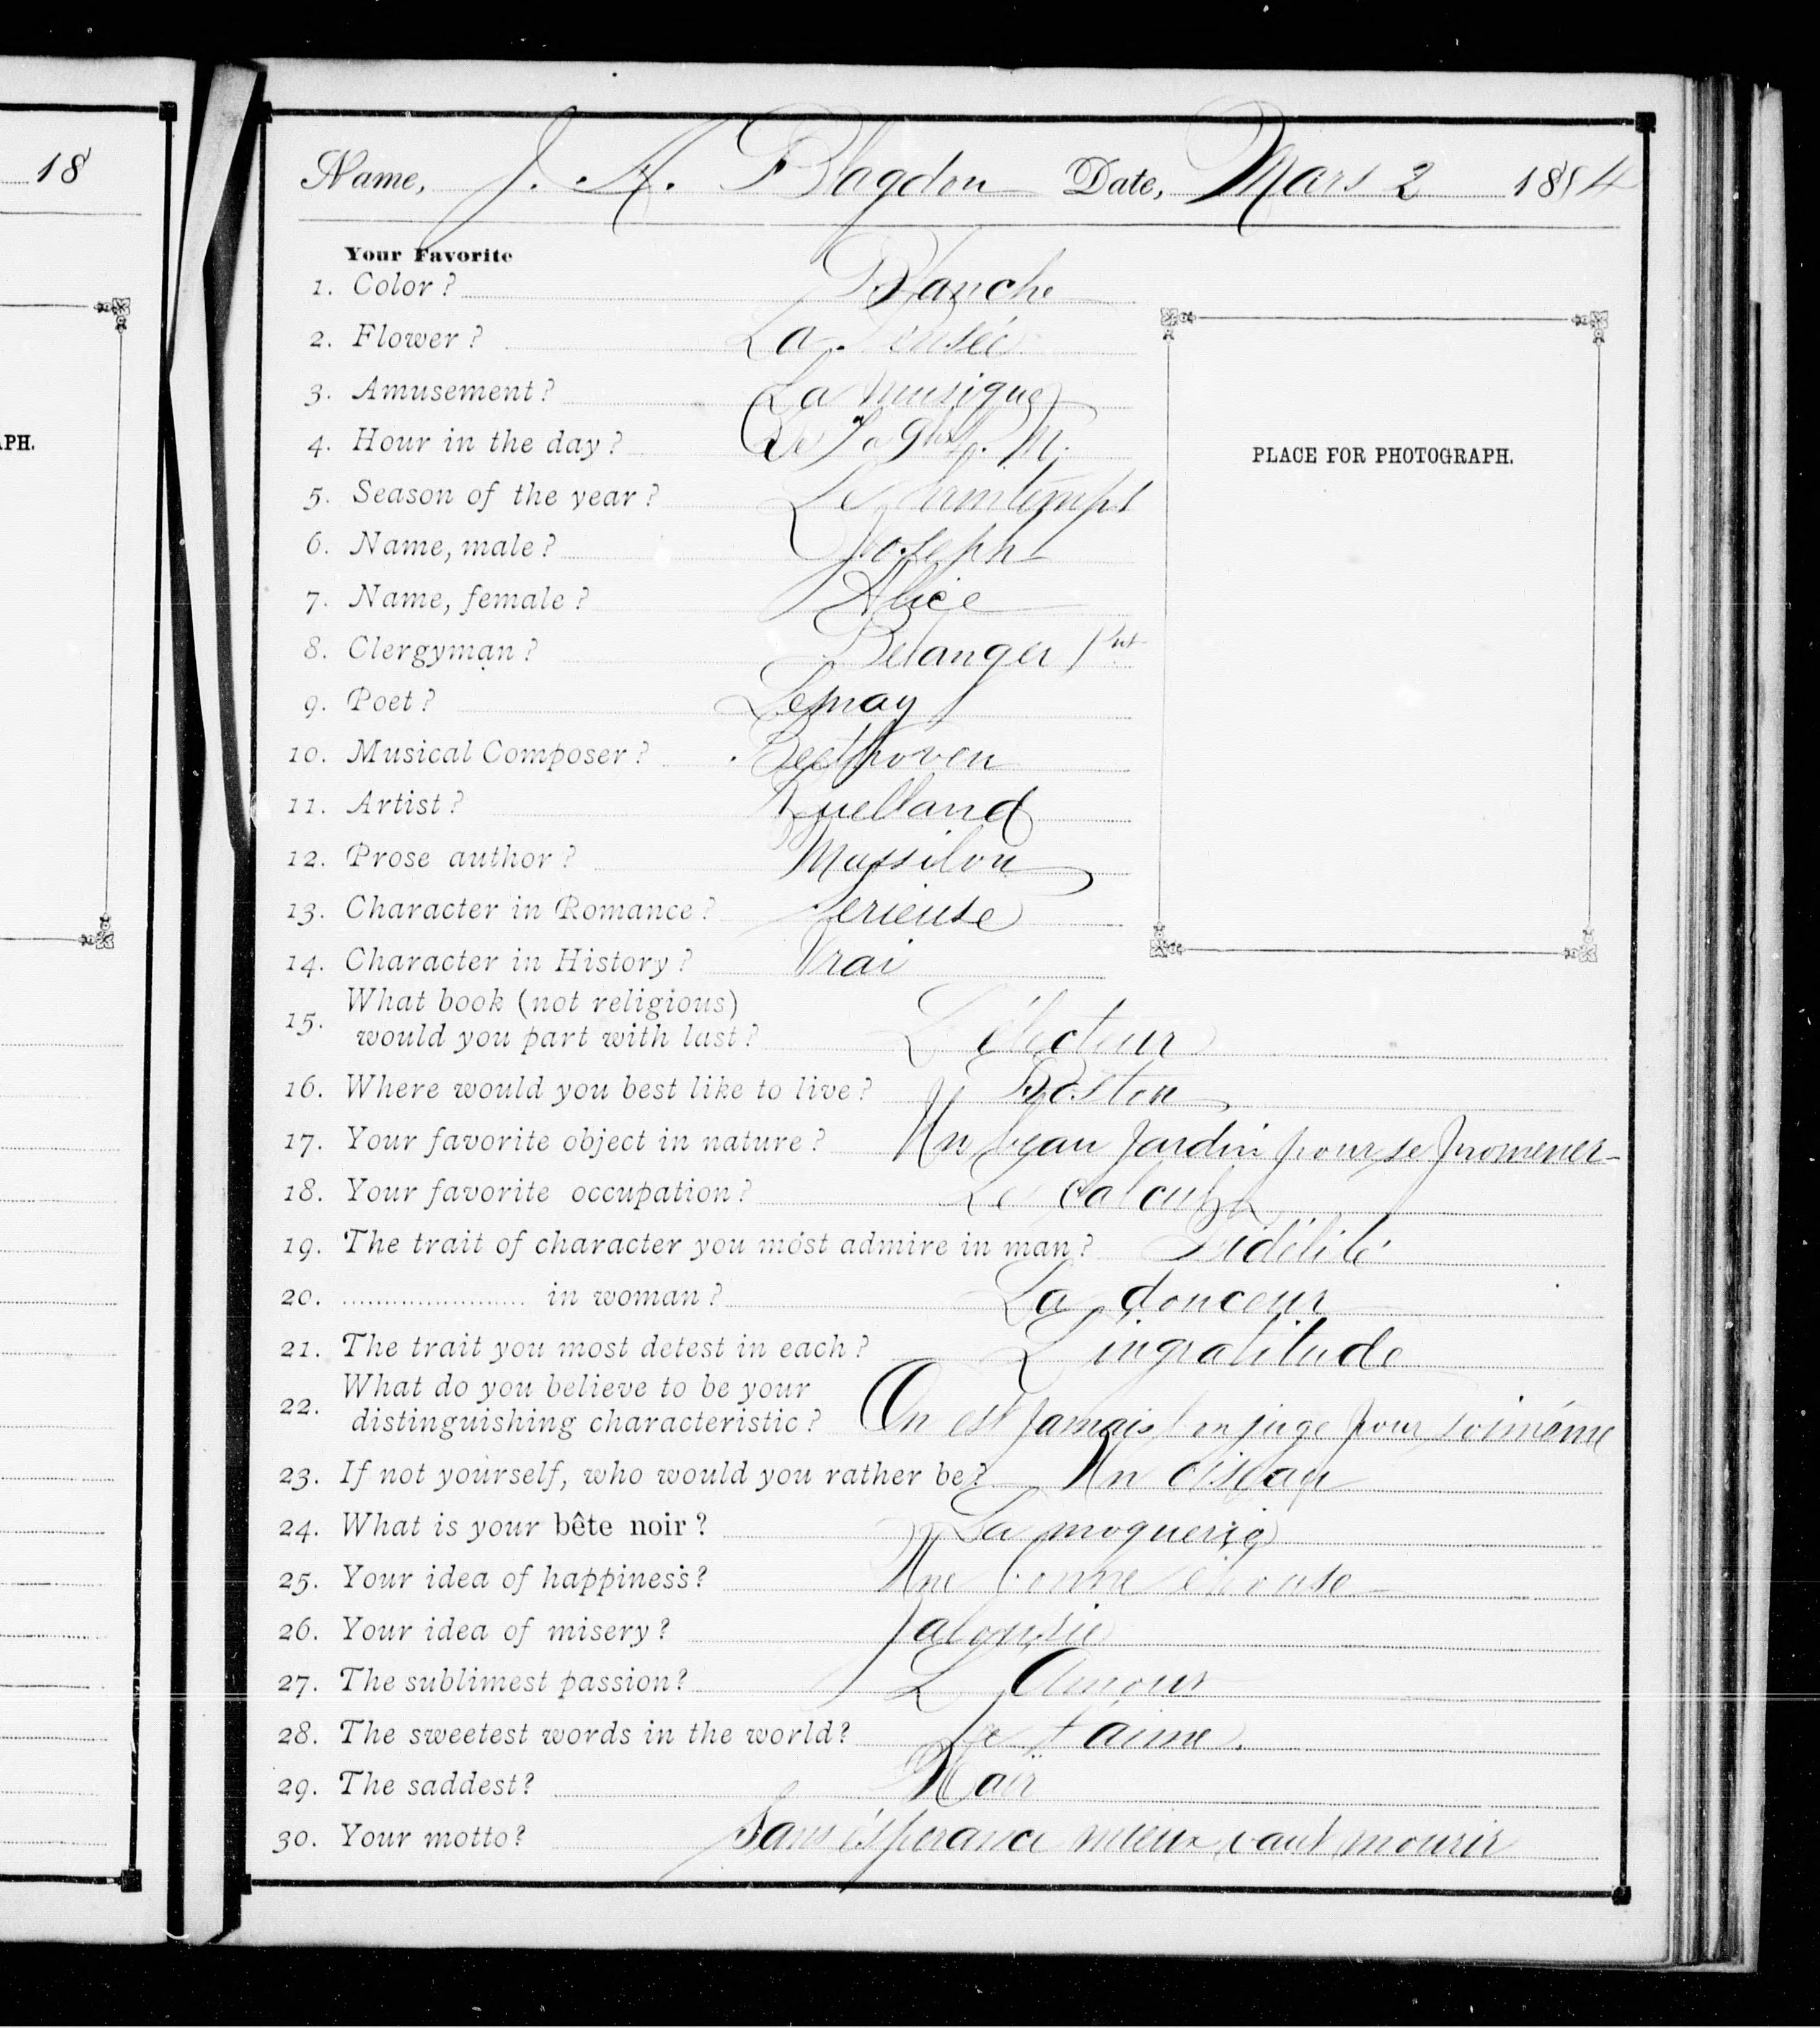 18
APH.
Name, J. A. Blagdon Date, Mars 2 1884
Your Favorite
1. Color? Blanche
2. Flower? La Pensée
3. Amusement? La musique
4. Hour in the day? De 7 a 9 P. M.
5. Season of the year? Le Printemps
6. Name, male? Joseph
7. Name, female? Alice
8. Clergyman? Belanger Ptre
9. Poet? Lemay
10. Musical Composer? Beethoven
11. Artist? Ruelland
12. Prose author? Massilon
13. Character in Romance? Serieuse
14. Character in History? Vrai
PLACE FOR PHOTOGRAPH.
15. What book (not religious)
would you part with last? L'électeur
16. Where would you best like to live? Boston
17. Your favorite object in nature? Un beau jardin pour se promener
18. Your favorite occupation? Le calcul
19. The trait of character you most admire in man? Fidélité
20. ...................... in woman? La douceur
21. The trait you most detest in each? L'ingratitude
22. What do you believe to be your
distinguishing characteristic? On est jamais bon juge pour soimême
23. If not yourself, who would you rather be? Un oiseau
24. What is your bête noir? La moquerie
25. Your idea of happiness? Une bonne épouse
26. Your idea of misery? Jalousie
27. The sublimest passion? L'Amour
28. The sweetest words in the world? Je t'aime.
29. The saddest?
30. Your motto? Sans ésperance mieux vaut mourir